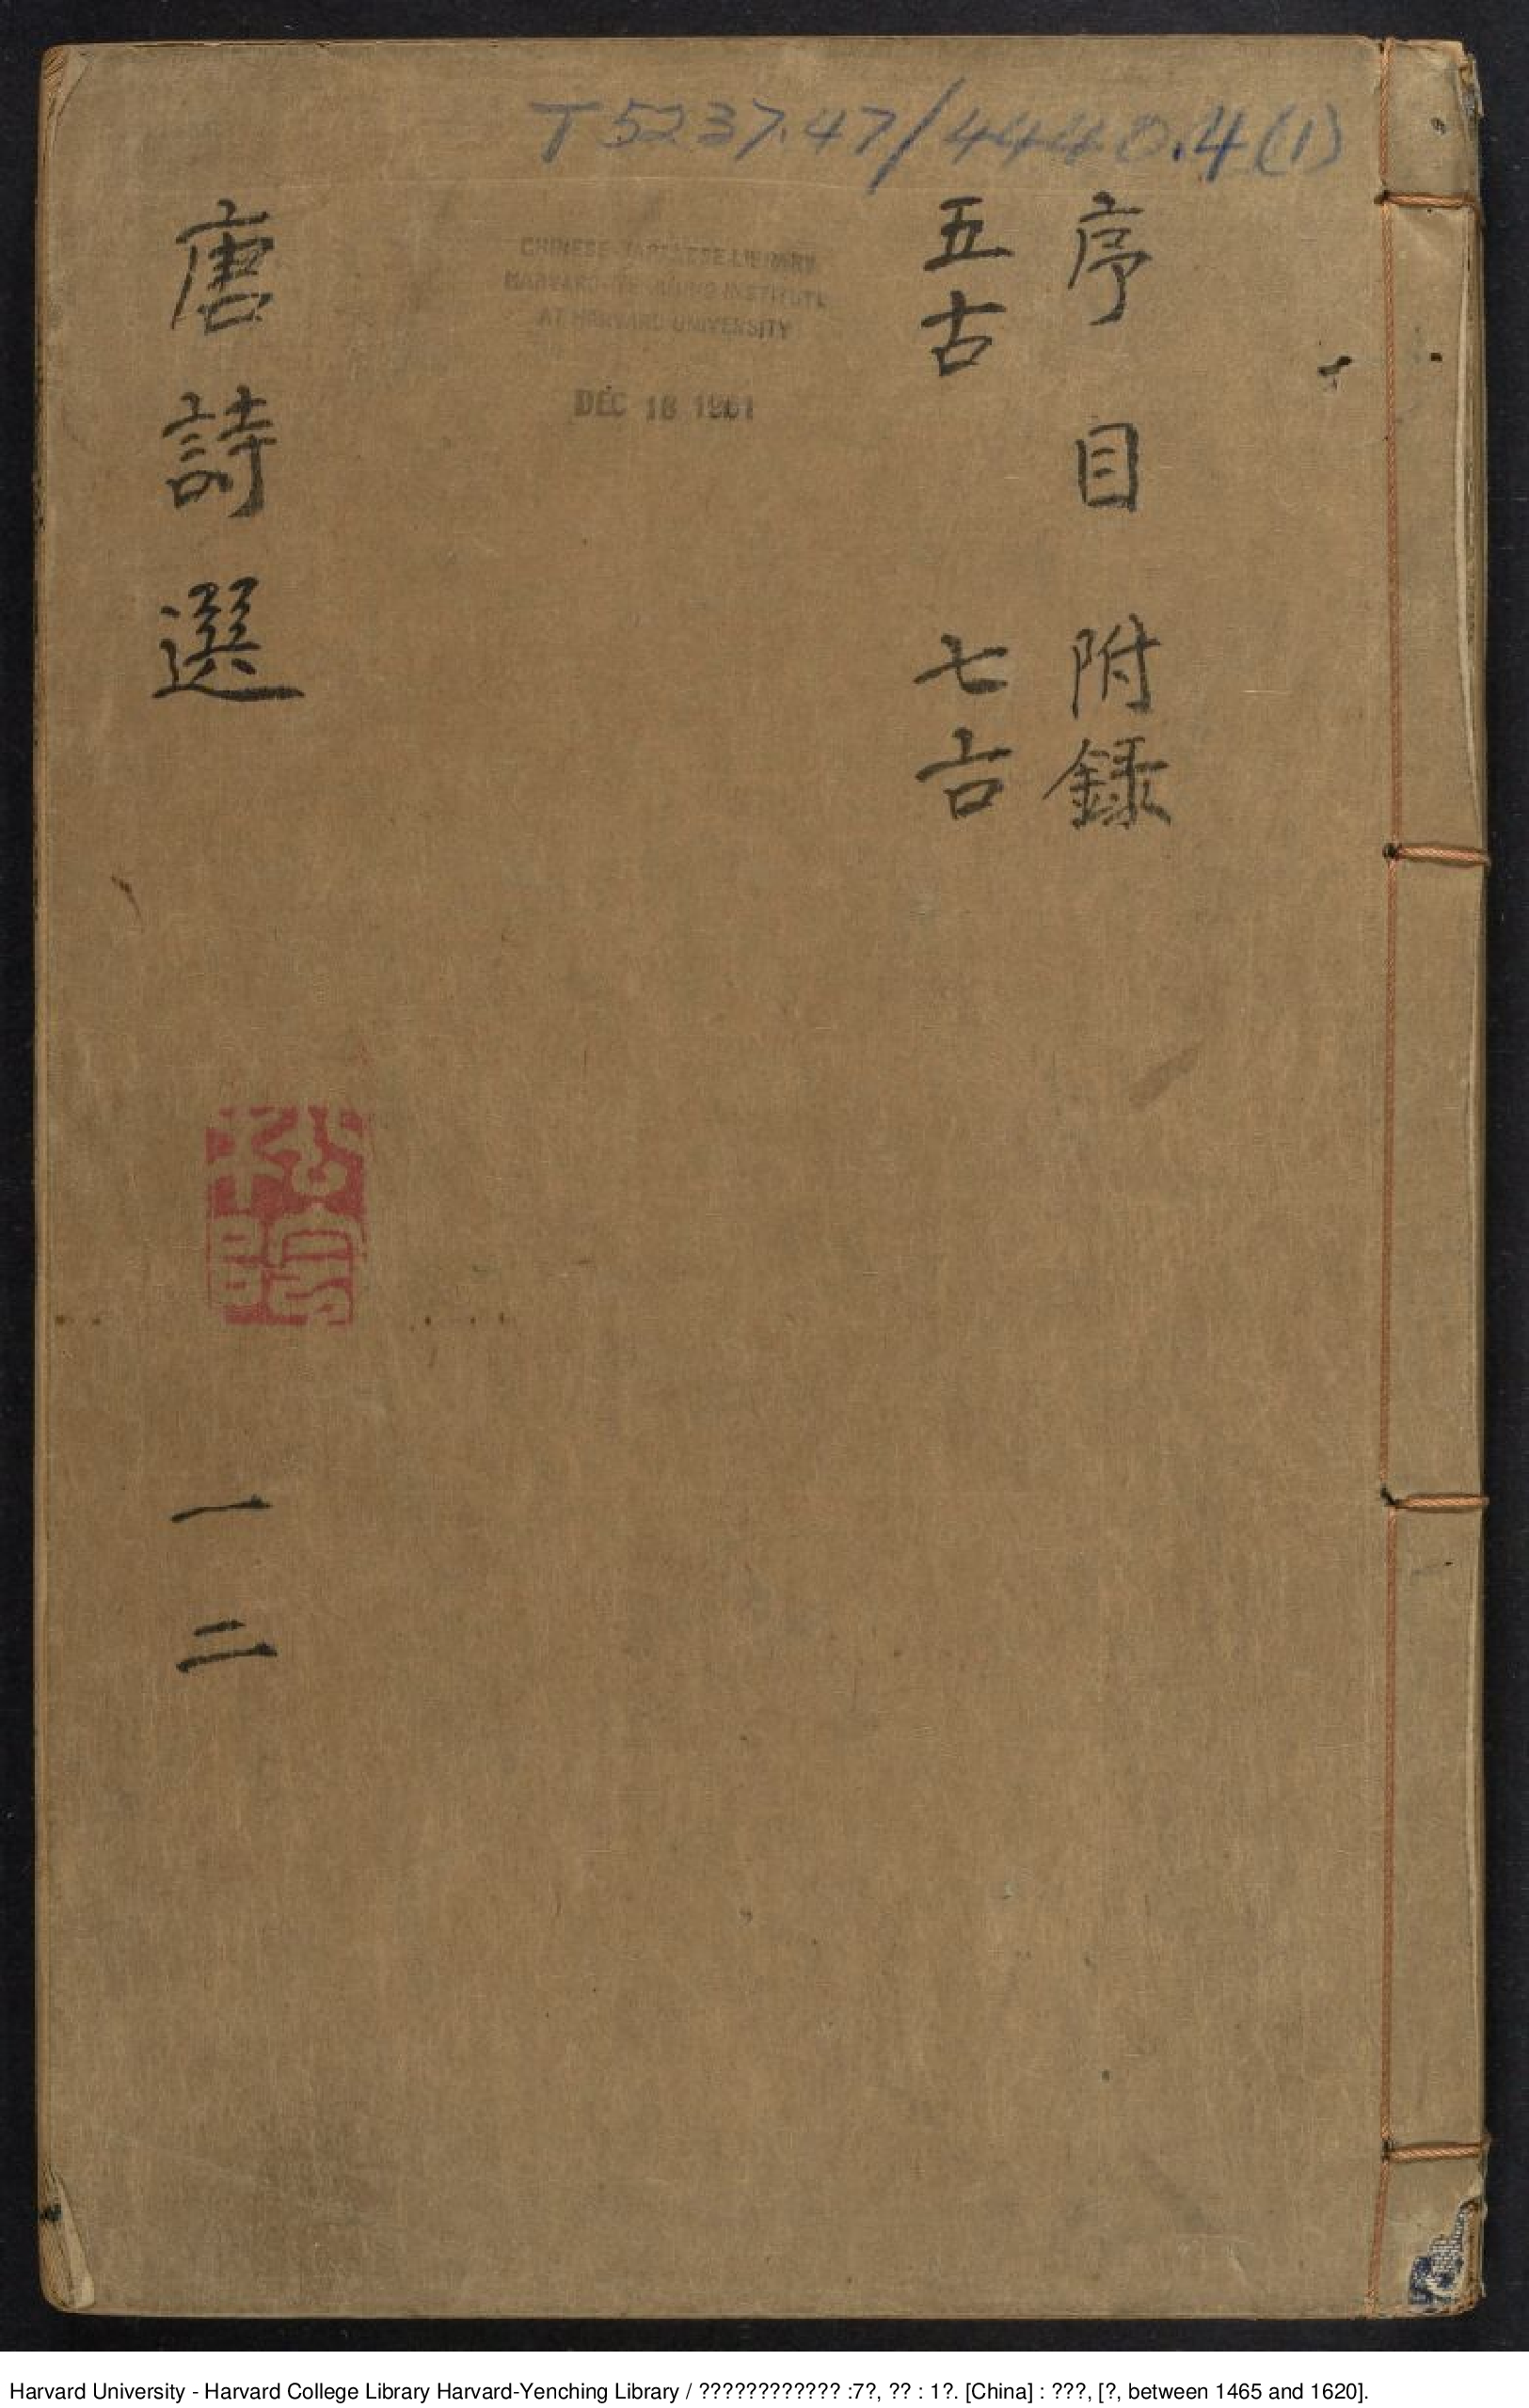 T 5237.47/4440.4(1)
序 目 附錄
五古 七古
CHINESE-JAPANESE LIBRARY
HARVARD-YENCHING INSTITUTE
AT HARVARD UNIVERSITY
DEC 18 1961
唐詩選
一 二
Harvard University - Harvard College Library Harvard-Yenching Library / ???????????? :7?, ?? : 1?. [China] : ???, [?, between 1465 and 1620].